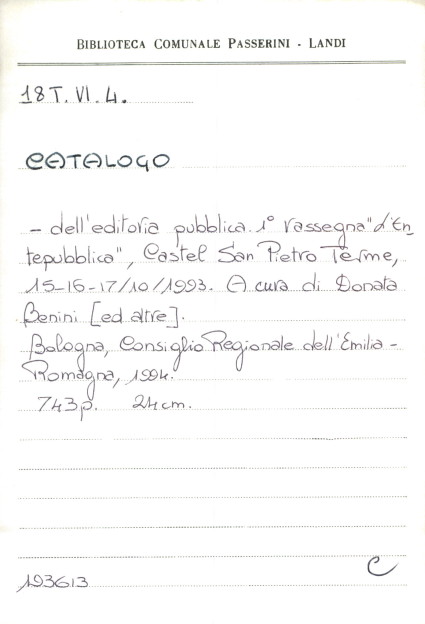 BIBLIOTECA COMUNALE PASSERINI - LANDI
18 T. VI. 4.
CATALOGO
- dell'editoria pubblica. 1° rassegna "d'En
tepubblica", Castel San Pietro Terme,
15-16-17/10/1993. A cura di Donata
Benini [ed altre].
Bologna, Consiglio Regionale dell'Emilia -
Romagna, 1994.
743 p. 24 cm.
C
193613